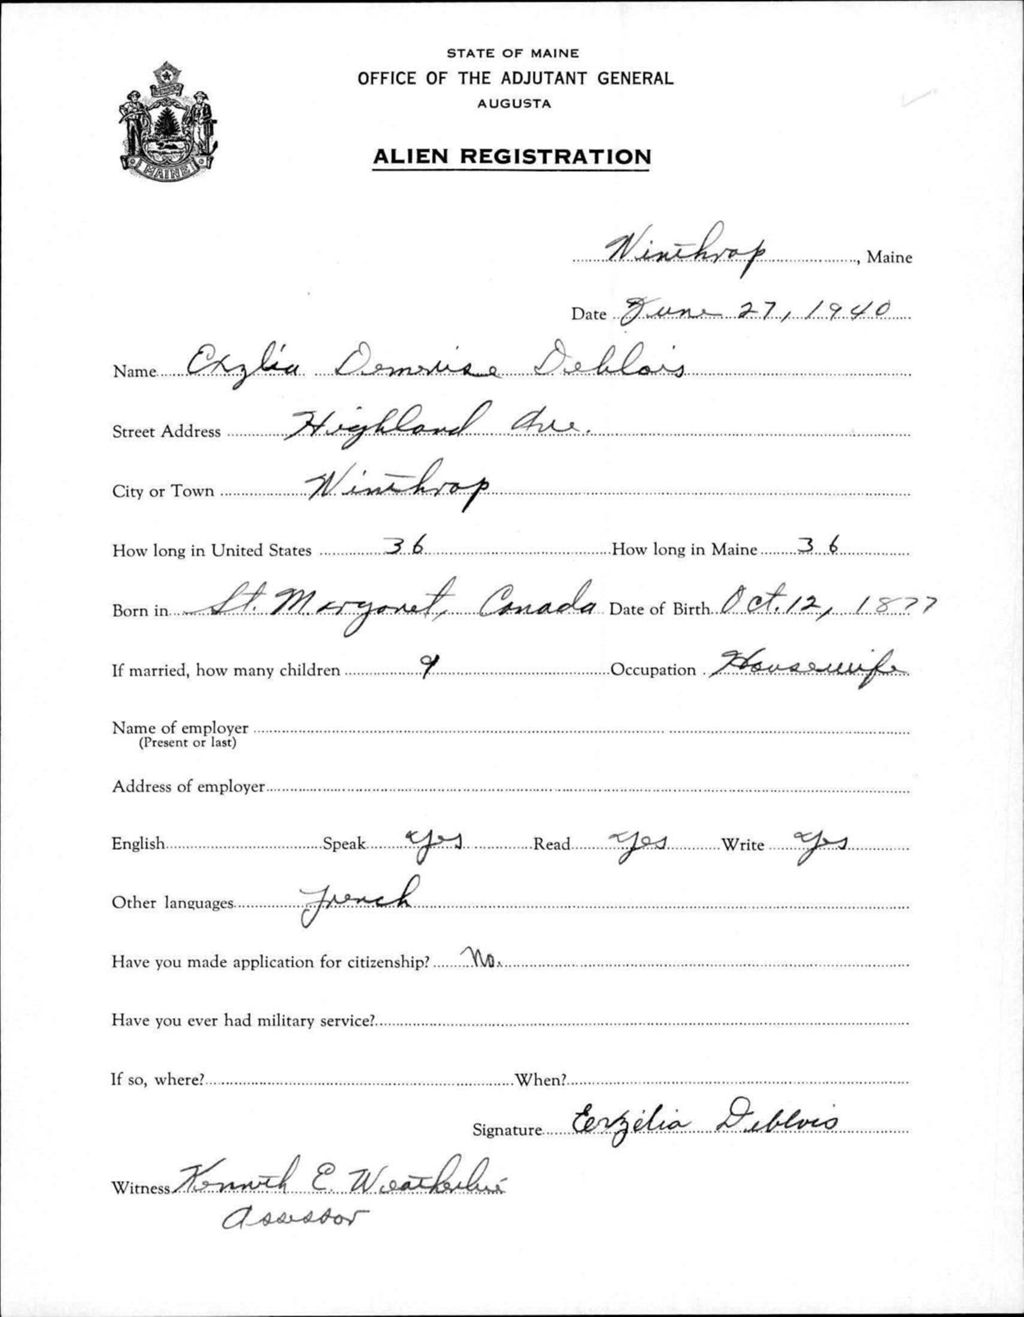 STATE OF MAINE
OFFICE OF THE ADJUTANT GENERAL
AUGUSTA
MAINE
ALIEN REGISTRATION
Winthrop, Maine
Date June 27, 1940
Name Deblois
Street Address Highland Ave.
City or Town Winthrop
How long in United States 36 How long in Maine 36
Born in St. Margaret, Canada Date of Birth Oct. 12, 1877
If married, how many children 9 Occupation Housewife
Name of employer
(Present or last)
Address of employer
English Speak Yes Read Yes Write Yes
Other languages French
Have you made application for citizenship? No.
Have you ever had military service?
If so, where? When?
Signature Deblois
Witness Kenneth E.
Assessor